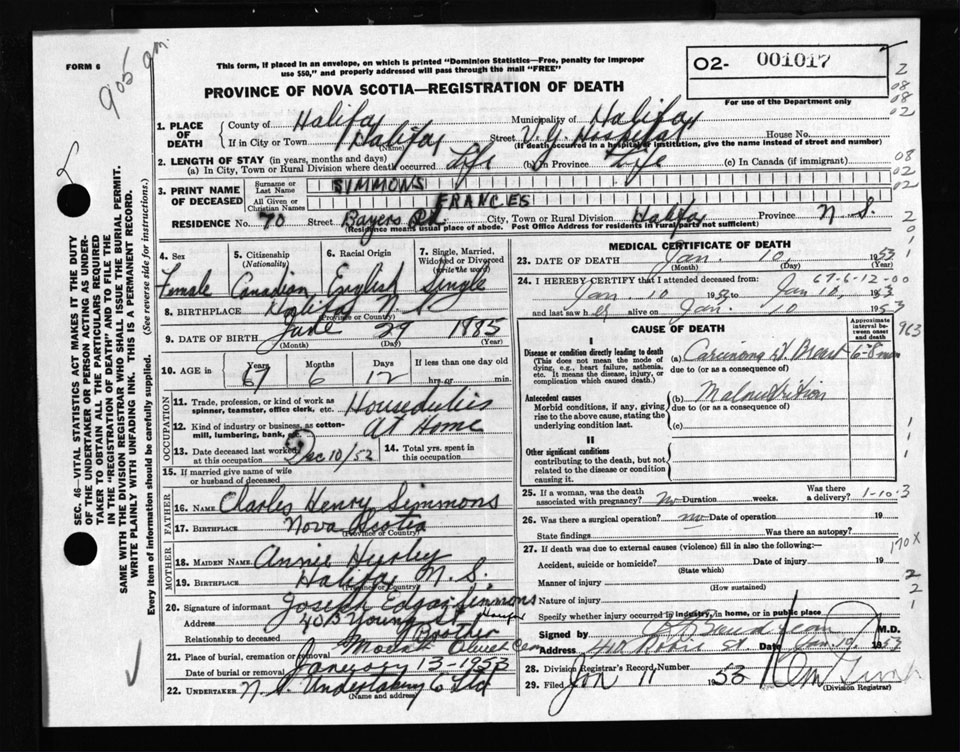 FORM 6
905 am.
This form, if placed in an envelope, on which is printed "Dominion Statistics—Free, penalty for improper
use $50," and properly addressed will pass through the mail "FREE"
O2- 001017
For use of the Department only
PROVINCE OF NOVA SCOTIA—REGISTRATION OF DEATH
1. PLACE OF DEATH
County of Halifax Municipality of Halifax
If in City or Town Halifax Street V. G. Hospital House No.
(Name) (If death occurred in a hospital or institution, give the name instead of street and number)
2. LENGTH OF STAY (in years, months and days)
(a) In City, Town or Rural Division where death occurred Life (b) In Province Life (c) In Canada (if immigrant)
3. PRINT NAME OF DECEASED
Surname or Last Name SIMMONS
All Given or Christian Names FRANCES
RESIDENCE No. 70 Street Bayers Rd. City, Town or Rural Division Halifax Province N. S.
(Residence means usual place of abode. Post Office Address for residents in rural parts not sufficient)
4. Sex Female
5. Citizenship (Nationality) Canadian
6. Racial Origin English
7. Single, Married, Widowed or Divorced (write the word) Single
8. BIRTHPLACE Halifax N. S.
(Province or Country)
9. DATE OF BIRTH June 29 1885
(Month) (Day) (Year)
10. AGE in Years 67 Months 6 Days 12 If less than one day old
hrs. or min.
OCCUPATION
11. Trade, profession, or kind of work as spinner, teamster, office clerk, etc. Houseduties
12. Kind of industry or business, as cotton-mill, lumbering, bank, At Home
13. Date deceased last worked at this occupation Dec 10/52
14. Total yrs. spent in this occupation
15. If married give name of wife or husband of deceased
FATHER
16. NAME Charles Henry Simmons
17. BIRTHPLACE Nova Scotia
(Province or Country)
MOTHER
18. MAIDEN NAME Annie Hurley
19. BIRTHPLACE Halifax N. S.
(Province or Country)
20. Signature of informant Joseph Edgar Simmons
Address 40B Young St
Relationship to deceased Brother
21. Place of burial, cremation or removal Mount Olivet Cem
Date of burial or removal January 13-1953
22. UNDERTAKER N. S. Undertaking Co Ltd
(Name and address)
MEDICAL CERTIFICATE OF DEATH
23. DATE OF DEATH Jan. 10, 1953
(Month) (Day) (Year)
67-6-12-00
24. I HEREBY CERTIFY that I attended deceased from:
Jan. 10 to Jan 10, 1953
and last saw her alive on Jan. 10 1953
CAUSE OF DEATH
Approximate interval between onset and death
I
Disease or condition directly leading to death
(This does not mean the mode of dying, e.g., heart failure, asthenia, etc. It means the disease, injury, or complication which caused death.)
(a) Carcinoma Breast
due to (or as a consequence of)
Antecedent causes
Morbid conditions, if any, giving rise to the above cause, stating the underlying condition last.
(b) Malnutrition
due to (or as a consequence of)
(c)
II
Other significant conditions
contributing to the death, but not related to the disease or condition causing it.
25. If a woman, was the death associated with pregnancy? no Duration weeks. Was there a delivery?
1-10-3
26. Was there a surgical operation? no Date of operation 19
State findings Was there an autopsy?
170X
27. If death was due to external causes (violence) fill in also the following:—
Accident, suicide or homicide? Date of injury 19
(State which)
Manner of injury
(How sustained)
Nature of injury
Specify whether injury occurred in industry, in home, or in public place
Signed by M.D.
Address Robie St. Date Jan 1953
28. Division Registrar's Record Number
29. Filed Jan 11 1953
(Division Registrar)
SEC. 46—VITAL STATISTICS ACT MAKES IT THE DUTY
OF THE UNDERTAKER OR PERSON ACTING AS UNDER-
TAKER TO OBTAIN ALL THE PARTICULARS REQUIRED
IN THE "REGISTRATION OF DEATH" AND TO FILE THE
SAME WITH THE DIVISION REGISTRAR WHO SHALL ISSUE THE BURIAL PERMIT.
WRITE PLAINLY WITH UNFADING INK. THIS IS A PERMANENT RECORD.
Every item of information should be carefully supplied. (See reverse side for instructions.)